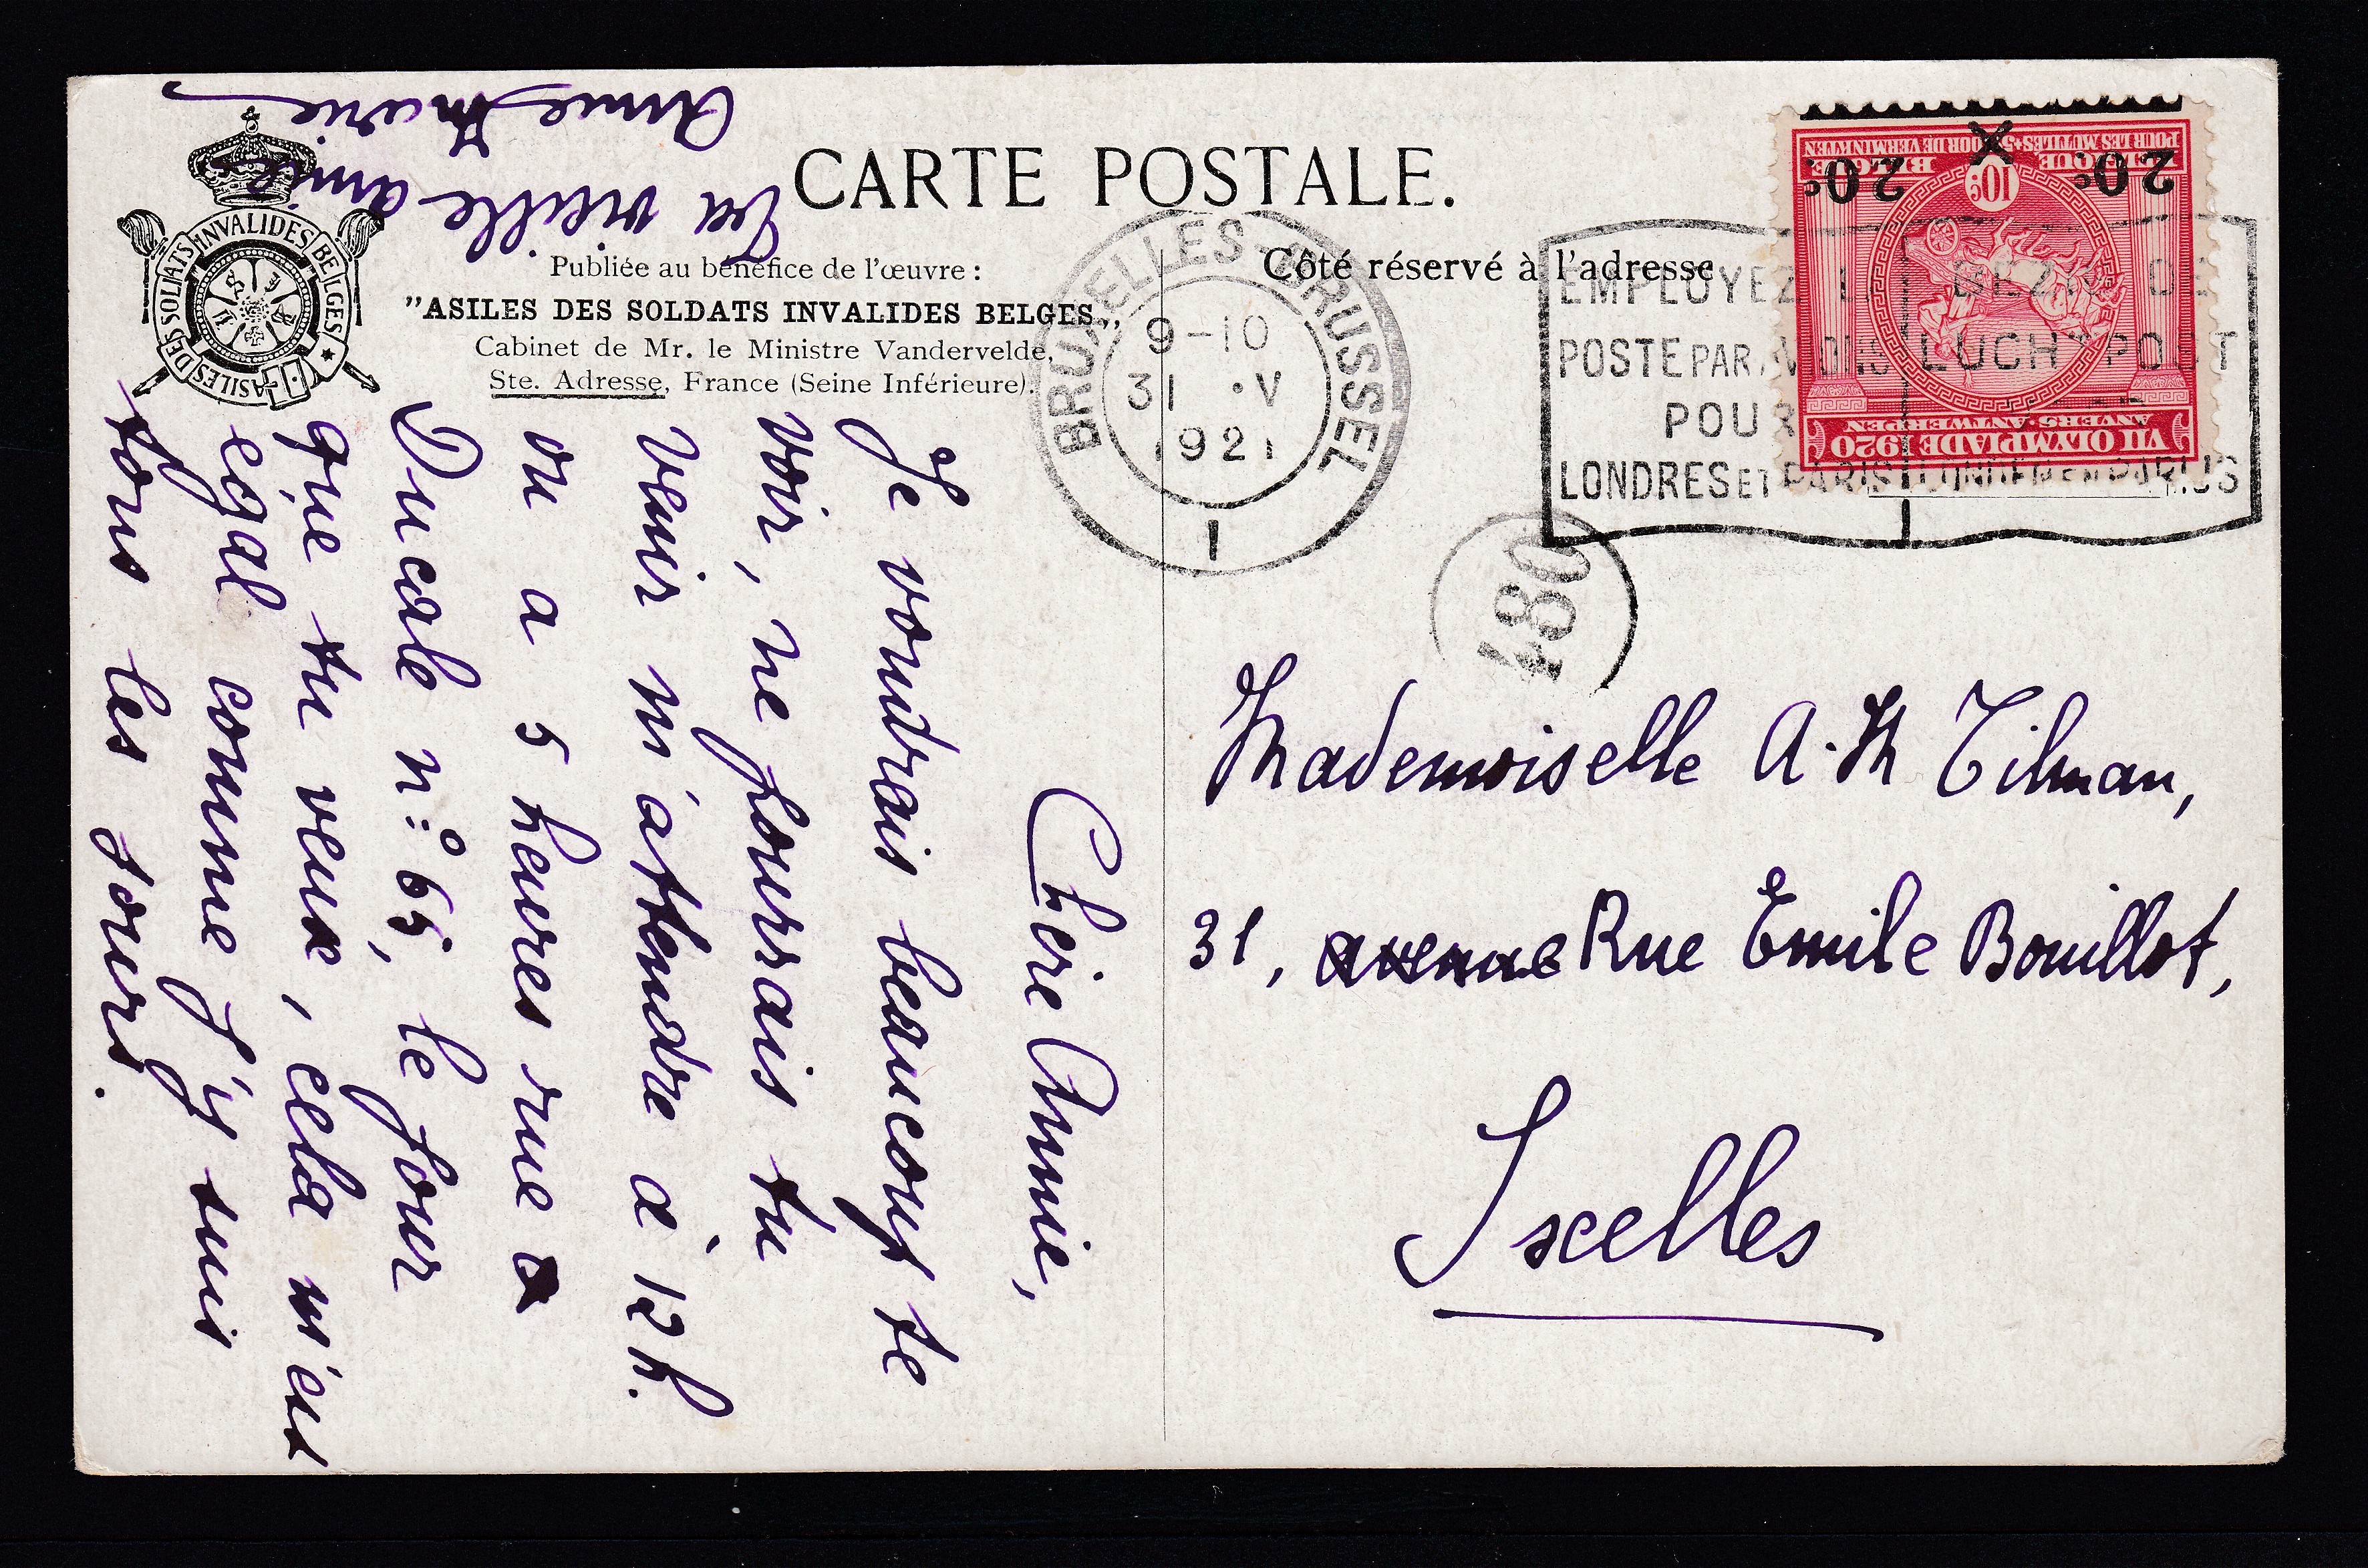 CARTE POSTALE.
Publiée au bénéfice de l'œuvre :
"ASILES DES SOLDATS INVALIDES BELGES„
Cabinet de Mr. le Ministre Vandervelde,
Ste. Adresse, France (Seine Inférieure).
ASILES DES SOLDATS INVALIDES BELGES
Côté réservé à l'adresse
BRUXELLES-BRUSSEL
9-10
31 • V
1921
1
EMPLOYEZ LA
POSTE PAR AVIONS
POUR
LONDRES ET PARIS
BEZIG DE
LUCHTPOST
LONDEN EN PARIJS
VII OLYMPIADE 1920
ANVERS-ANTWERPEN
10c
BELGIQUE BELGIË
POUR LES MUTILÉS+5c VOOR DE VERMINKTEN
20c 20c
480
Mademoiselle A-M Tilman,
31, avenue Rue Emile Bouillot,
Ixelles
Chère Annie,
Je voudrais beaucoup te
voir, ne pourrais tu
venir m'attendre à 12 h.
ou a 5 heures rue
Ducale n:o 65, le jour
que tu veux, cela m'est
egal comme j'y suis
tous les jours.
Ta vieille amie
Anne Marie